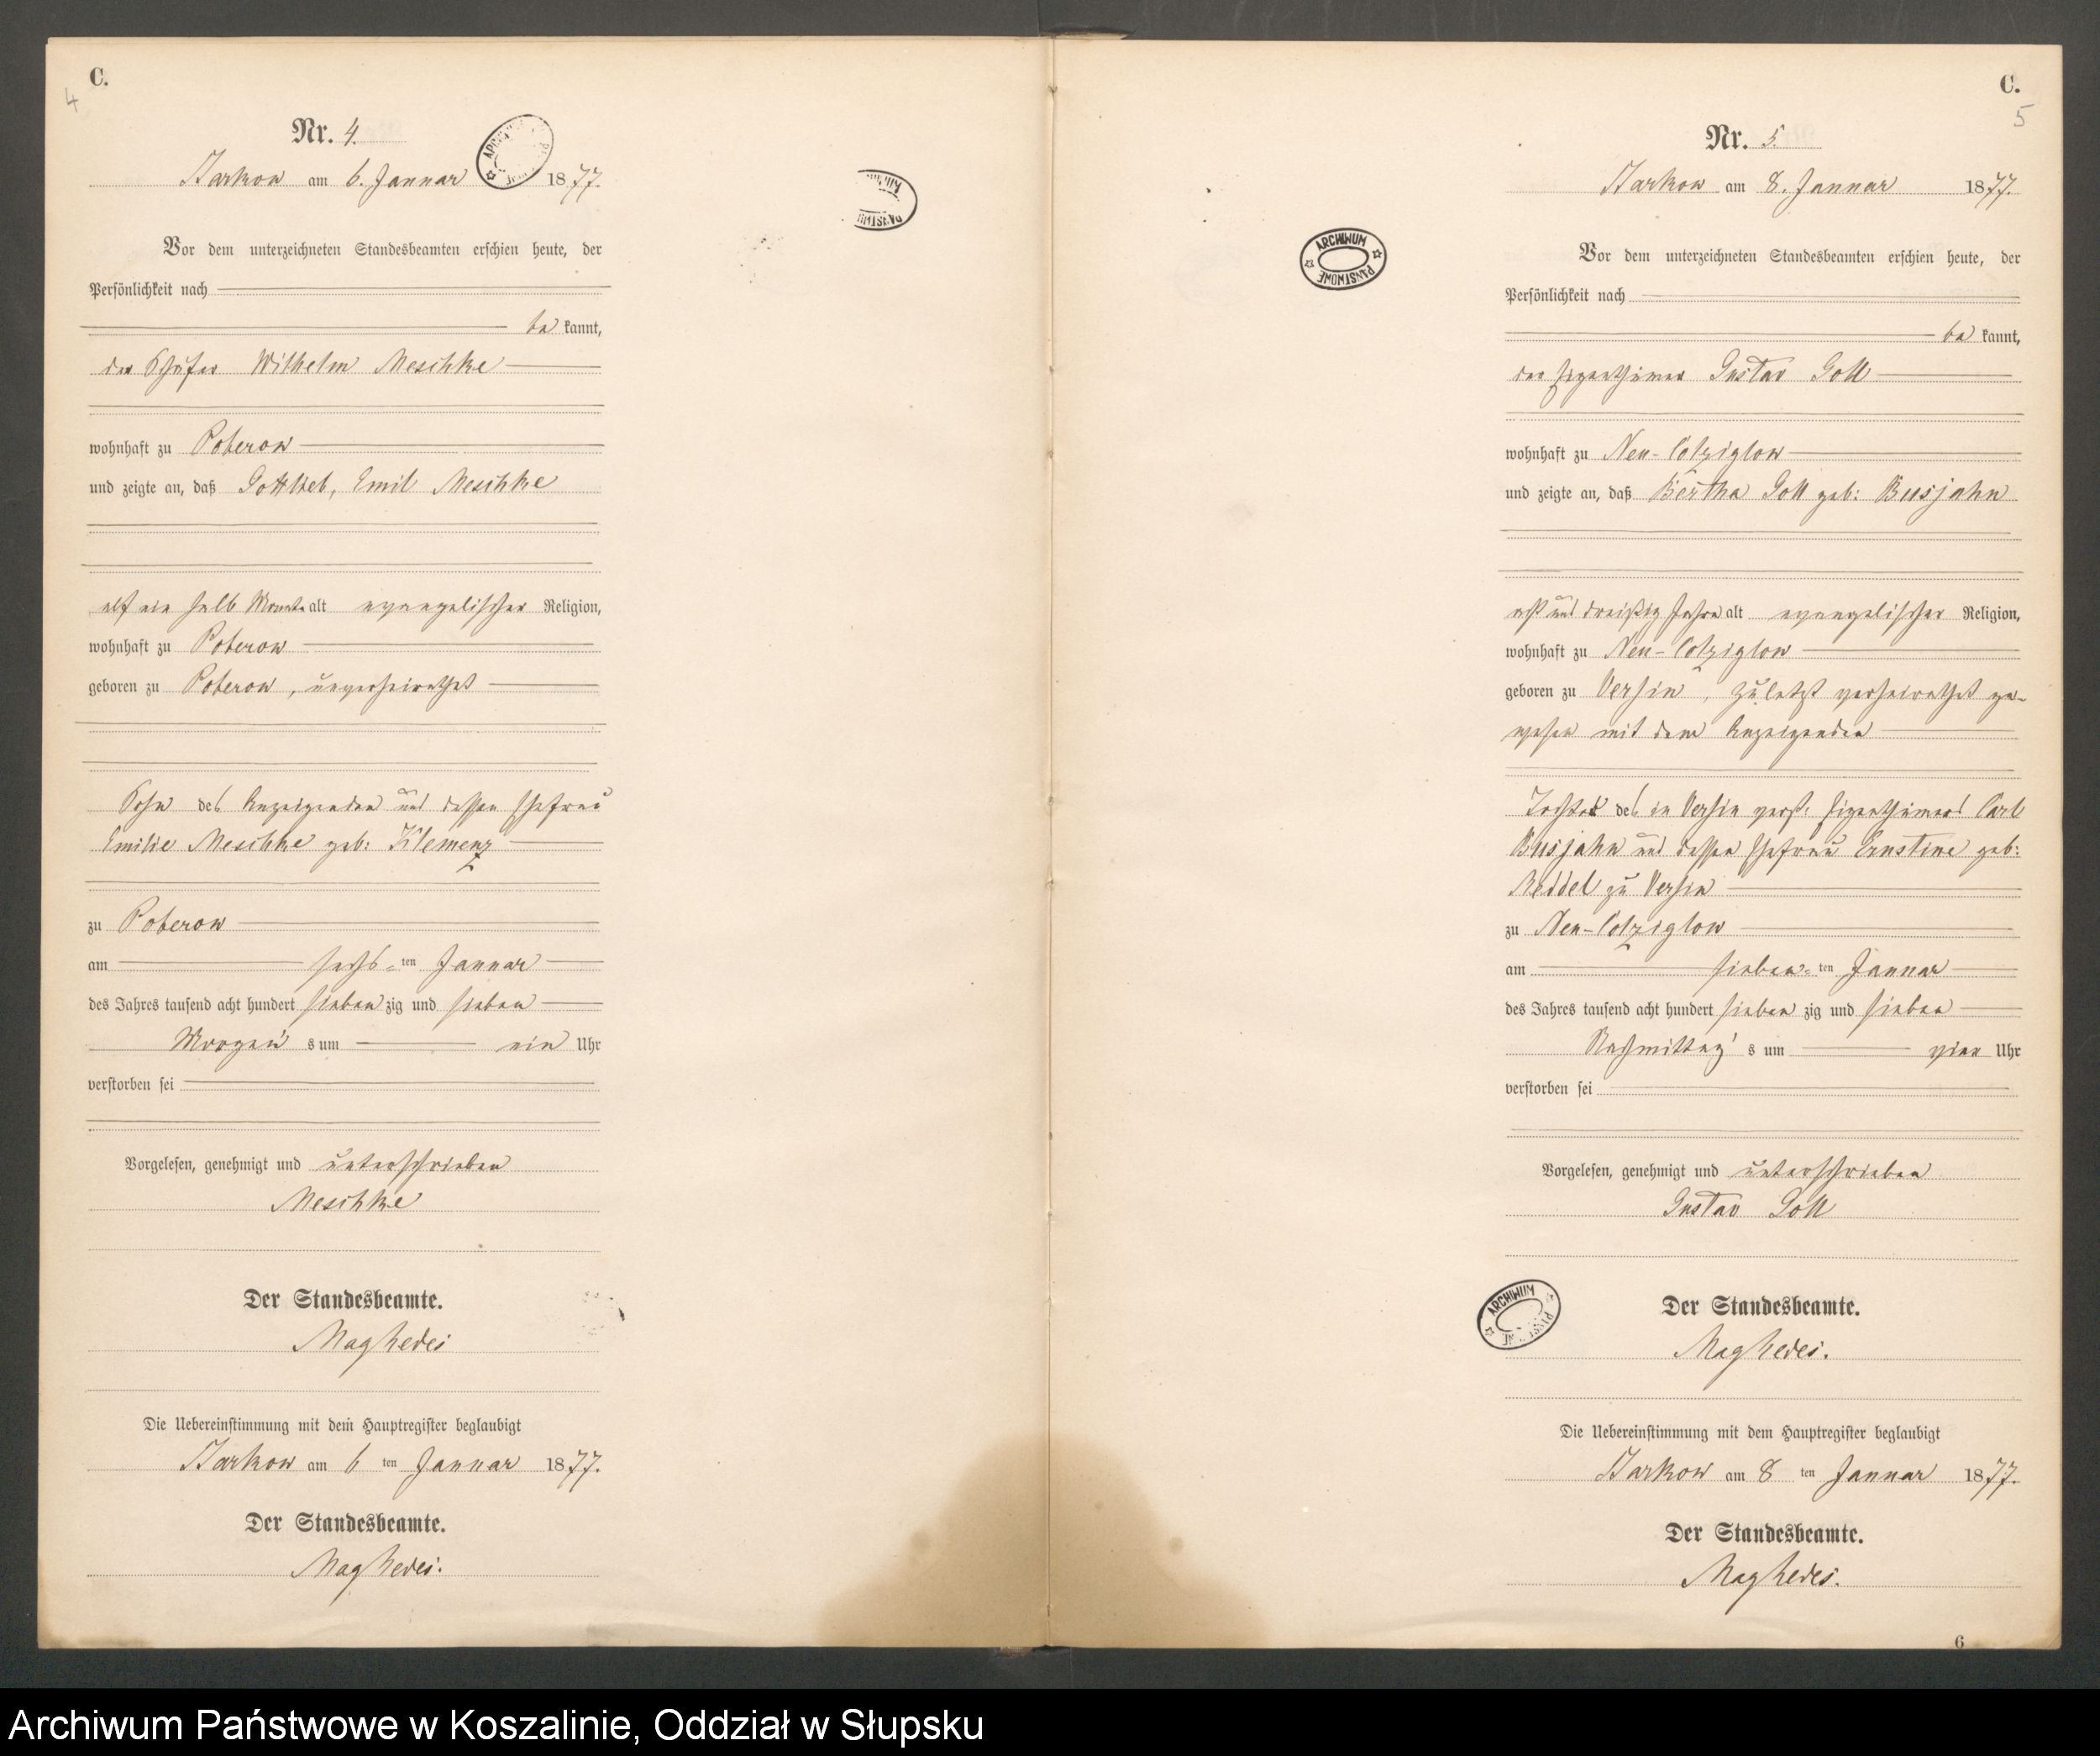 C.
4
Nr. 4.
Starkow am 6. Januar 1877.
Vor dem unterzeichneten Standesbeamten erschien heute, der
Persönlichkeit nach
be kannt,
der Schäfer Wilhelm Meschke
wohnhaft zu Poberow
und zeigte an, daß Gottlieb, Emil Meschke
elf ein halb Monate alt evangelischer Religion,
wohnhaft zu Poberow
geboren zu Poberow, unverheirathet
Sohn des Anzeigenden und dessen Ehefrau
Emilie Meschke geb: Klemenz
zu Poberow
am sechs-ten Januar
des Jahres tausend acht hundert sieben zig und sieben
Morgen's um ein Uhr
verstorben sei
Vorgelesen, genehmigt und unterschrieben
Meschke
Der Standesbeamte.
Die Uebereinstimmung mit dem Hauptregister beglaubigt
Starkow am 6 ten Januar 1877.
Der Standesbeamte.
ARCHIWUM PAŃSTWOWE
C.
5
Nr. 5.
Starkow am 8. Januar 1877.
Vor dem unterzeichneten Standesbeamten erschien heute, der
Persönlichkeit nach
be kannt,
der Eigenthümer Gustav Goll
wohnhaft zu Neu-Colziglow
und zeigte an, daß Bertha Goll geb: Busjahn
acht und dreißig Jahre alt evangelischer Religion,
wohnhaft zu Neu-Colziglow
geboren zu Versin, zuletzt verheirathet ge-
wesen mit dem Anzeigenden
Tochter des in Versin verst. Eigenthümers Carl
Busjahn und dessen Ehefrau Ernstine geb:
Reddel zu Versin
zu Neu-Colziglow
am sieben-ten Januar
des Jahres tausend acht hundert sieben zig und sieben
Nachmittag's um vier Uhr
verstorben sei
Vorgelesen, genehmigt und unterschrieben
Gustav Goll
ARCHIWUM
Der Standesbeamte.
Die Uebereinstimmung mit dem Hauptregister beglaubigt
Starkow am 8 ten Januar 1877.
Der Standesbeamte.
6
Archiwum Państwowe w Koszalinie, Oddział w Słupsku